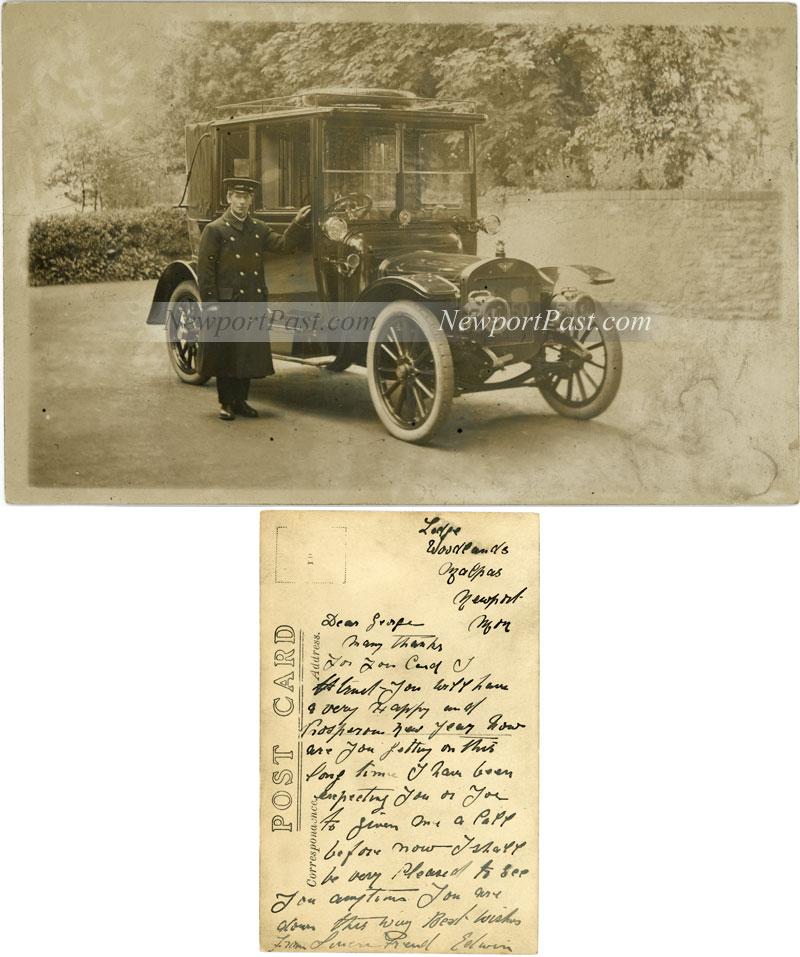 NewportPast.com NewportPast.com
POST CARD
Address.
Correspondence.
Lodge
Woodlands
Malpas
Newport
Mon
Dear George
Many thanks
for you Card I
trust You will have
a very Happy and
Prosperous New Year How
are You getting on this
long time I have been
expecting You or Joe
to given me a Call
before now I shall
be very Pleased to see
You anytime You are
down this way Best Wishes
From Sincere Friend Edwin